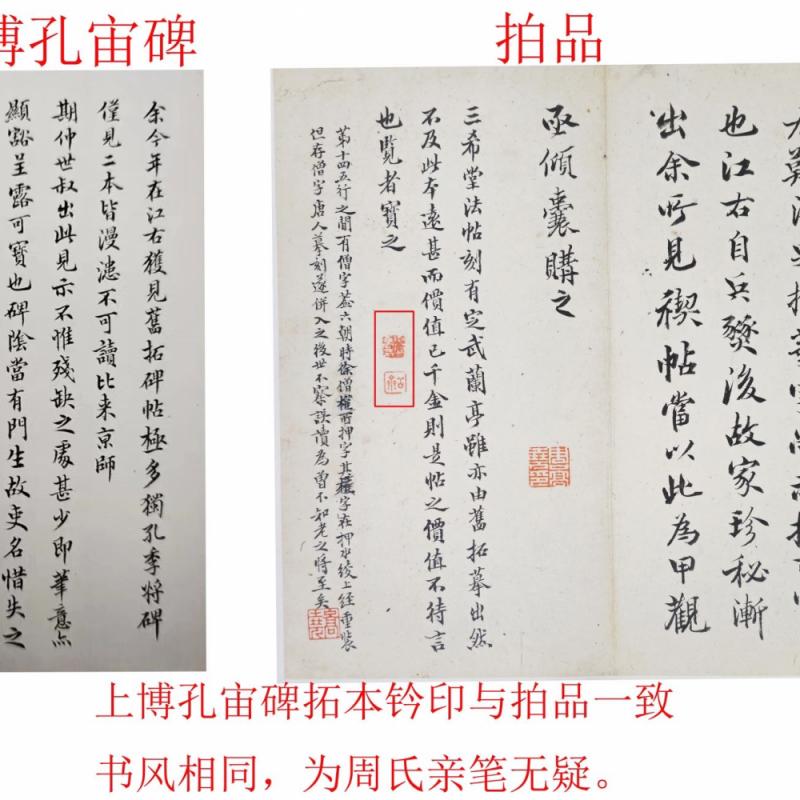 博孔宙碑
拍品
余今年在江右獲見舊拓碑帖極多獨孔季將碑
僅見二本皆漫漶不可讀比来京師
期仲世叔出此見示不惟殘缺之處甚少即筆意亦
顯豁呈露可寶也碑陰當有門生故吏名惜失之
也江右自兵燹後故家珍秘漸
出余所見禊帖當以此為甲觀
亟傾囊購之
三希堂法帖刻有定武蘭亭雖亦由舊拓摹出然
不及此本遠甚而價值已千金則是帖之價值不待言
也覽者寶之
第十四五行之間有僧字葢六朝時徐僧權所押字其權字在押水綾上經重裝
但存僧字唐人摹刻遂併入之後世不察誤讀為曾不知老之將至矣
上博孔宙碑拓本钤印与拍品一致
书风相同，为周氏亲笔无疑。